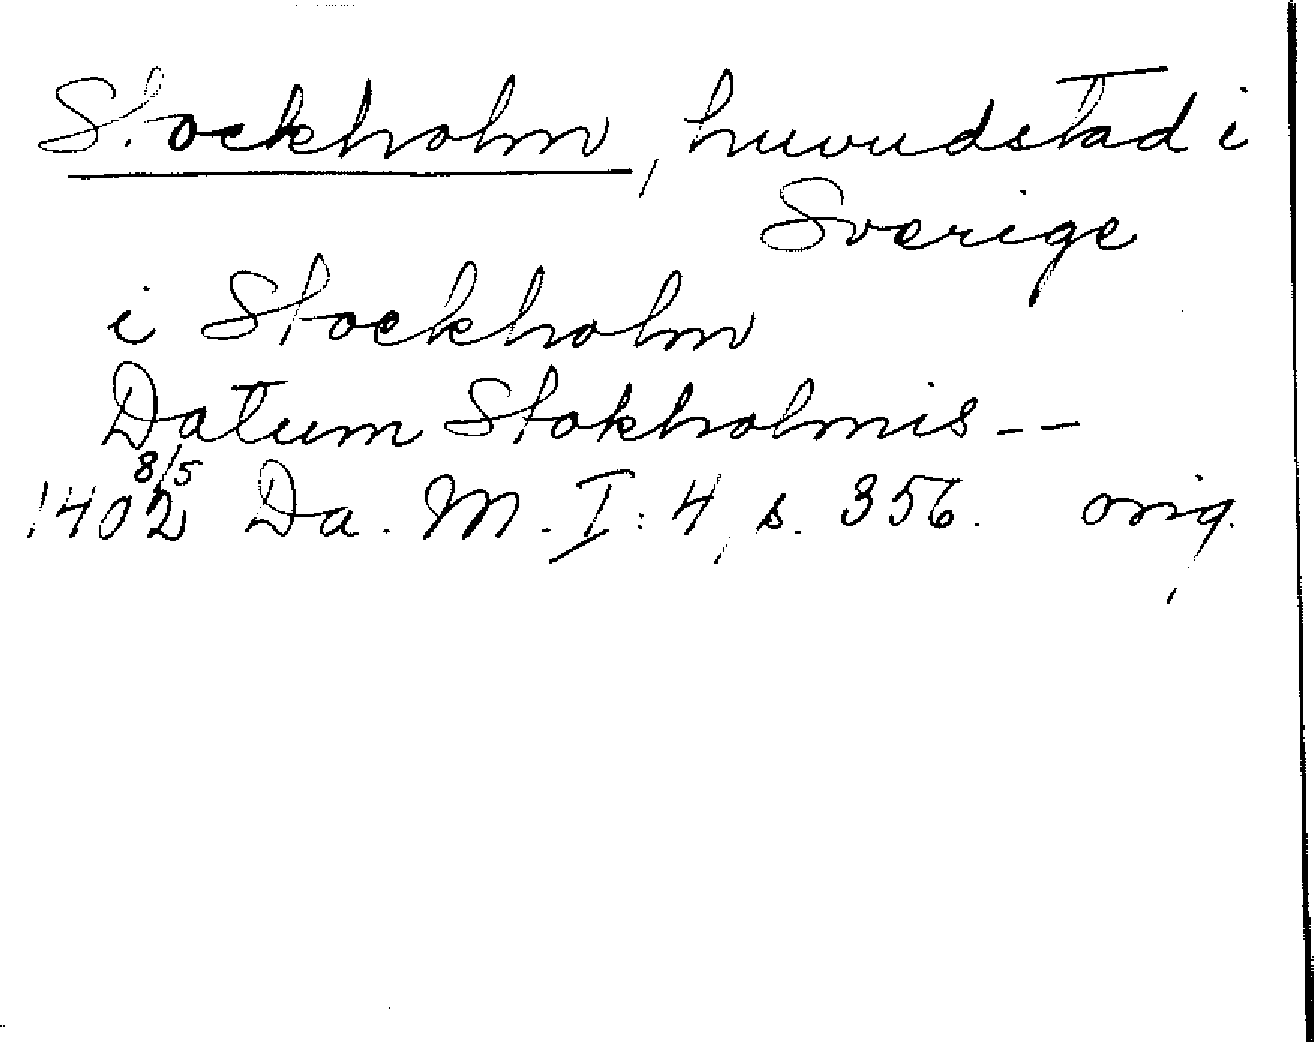 Stockholm, huvudstad i
Sverige
i Stockholm
Datum Stokholmis --
1402 8/5 Da. M. I: 4, s. 356. orig.